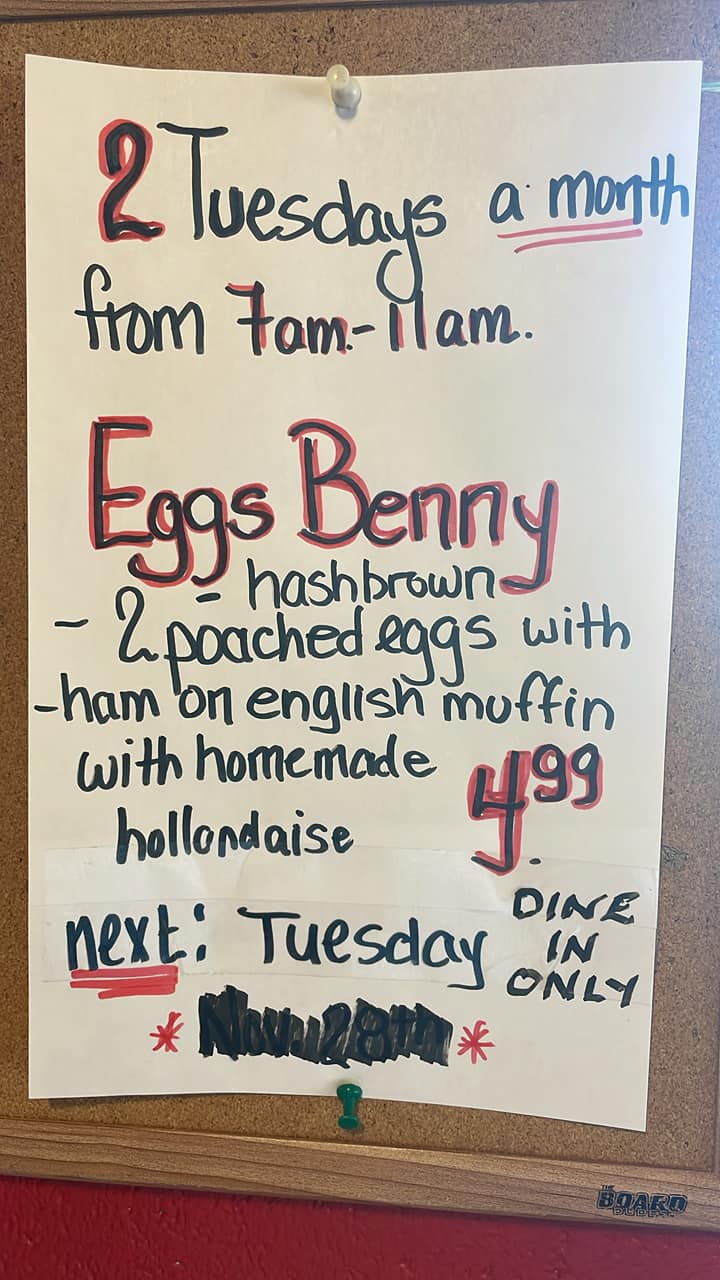 2 Tuesdays a month
from 7am.-11am.
Eggs Benny
- hashbrown
- 2 poached eggs with
-ham on english muffin
with homemade
hollandaise
4.99
next: Tuesday
DINE
IN
ONLY
* Nov. 28th *
THE
BOARD
DUDES